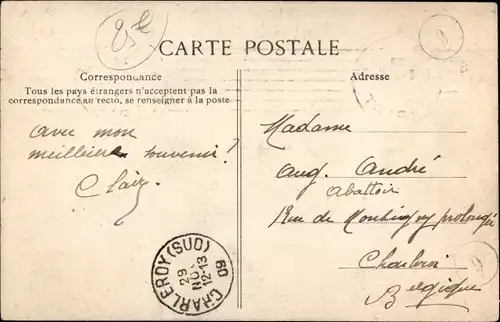 CARTE POSTALE
Correspondance
Tous les pays étrangers n'acceptent pas la
correspondance au recto, se renseigner à la poste
Adresse
avec mon
meilleur souvenir!
Madame
Aug. André
Abattoir
Rue de Montigny prolongée
Charleroi
Belgique
CHARLEROY (SUD)
29
NOV
12-13
09